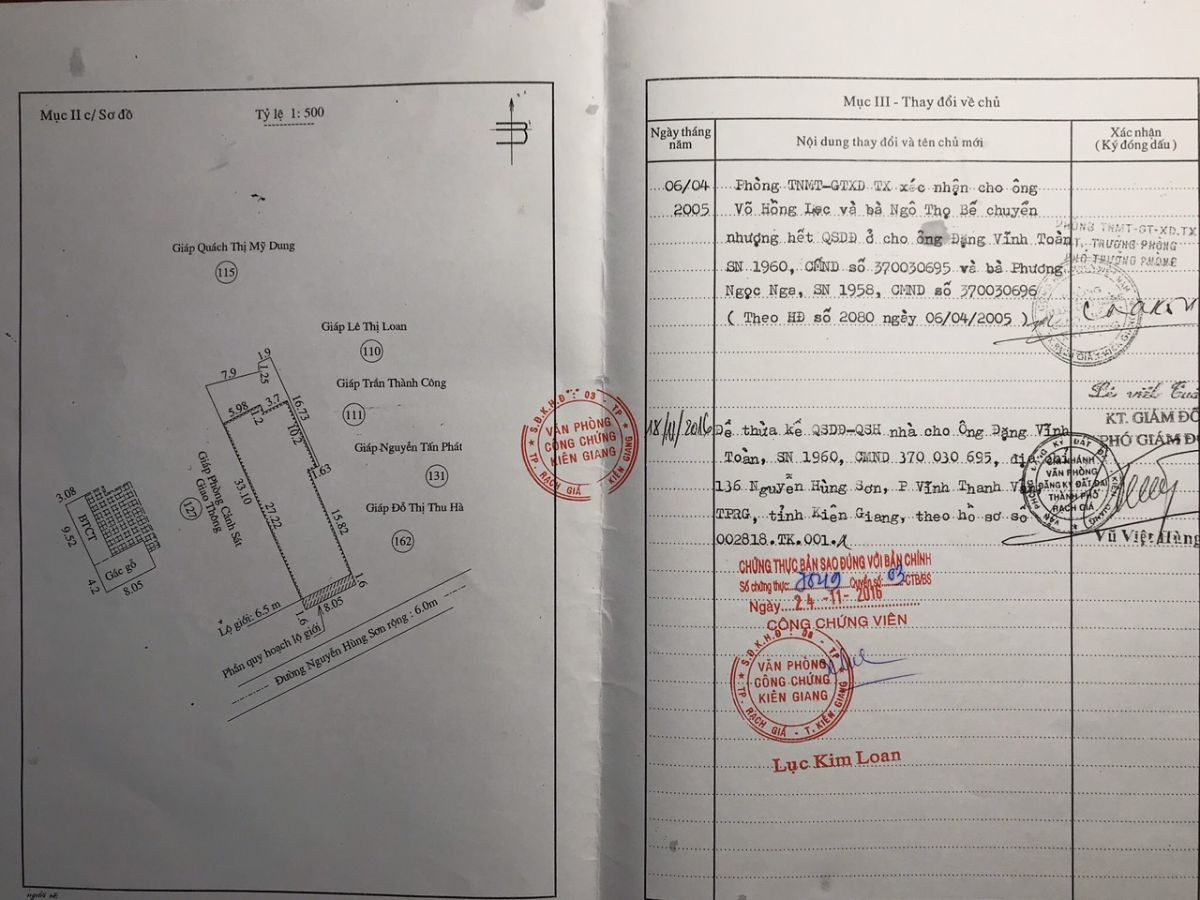 Mục II c/ Sơ đồ
Tỷ lệ 1: 500
Giáp Quách Thị Mỹ Dung
115
Giáp Lê Thị Loan
110
Giáp Trần Thành Công
111
Giáp Nguyễn Tấn Phát
131
Giáp Đỗ Thị Thu Hà
162
Giáp Phòng Cảnh Sát
Giao Thông
127
7.9
1.9
1.25
5.98
1.2
3.7
16.73
10.2
1.63
33.10
27.22
15.82
1.6
8.05
1.6
3.08
9.52
BTCT
Gác gỗ
4.2
8.05
Lộ giới: 6.5 m
Phần quy hoạch lộ giới
Đường Nguyễn Hùng Sơn rộng : 6.0m
S.Đ.K.H.Đ : 03 - TP
VĂN PHÒNG
CÔNG CHỨNG
KIÊN GIANG
TP. RẠCH GIÁ - T. KIÊN GIANG
Mục III - Thay đổi về chủ
Ngày tháng
năm
Nội dung thay đổi và tên chủ mới
Xác nhận
( Ký đóng dấu )
06/04
2005
Phòng TNMT-GTXD TX xác nhận cho ông
Võ Hồng Lạc và bà Ngô Thọ Bế chuyển
nhượng hết QSDĐ ở cho ông Đặng Vĩnh Toàn,
SN 1960, CMND số 370030695 và bà Phương
Ngọc Nga, SN 1958, CMND số 370030696
( Theo HĐ số 2080 ngày 06/04/2005 )
PHÒNG TNMT-GT-XD.TX
T. TRƯỞNG PHÒNG
PHÓ TRƯỞNG PHÒNG
Lê viết
KT. GIÁM ĐỐ
PHÓ GIÁM ĐỐ
18/11/2016
Để thừa kế QSDĐ-QSH nhà cho Ông Đặng Vĩnh
Toàn, SN 1960, CMND 370 030 695, địa chỉ
136 Nguyễn Hùng Sơn, P Vĩnh Thanh Vân,
TPRG, tỉnh Kiên Giang, theo hồ sơ số
002818.TK.001.
CHI NHÁNH
VĂN PHÒNG
ĐĂNG KÝ ĐẤT ĐAI
THÀNH PHỐ
RẠCH GIÁ
Vũ Việt Hùng
CHỨNG THỰC BẢN SAO ĐÚNG VỚI BẢN CHÍNH
Số chứng thực: Quyển số: 03 -CTB/BS
Ngày 24 -11- 2016
CÔNG CHỨNG VIÊN
S.Đ.K.H.Đ : 08 - TP
VĂN PHÒNG
CÔNG CHỨNG
KIÊN GIANG
TP. RẠCH GIÁ - T. KIÊN GIANG
Lục Kim Loan